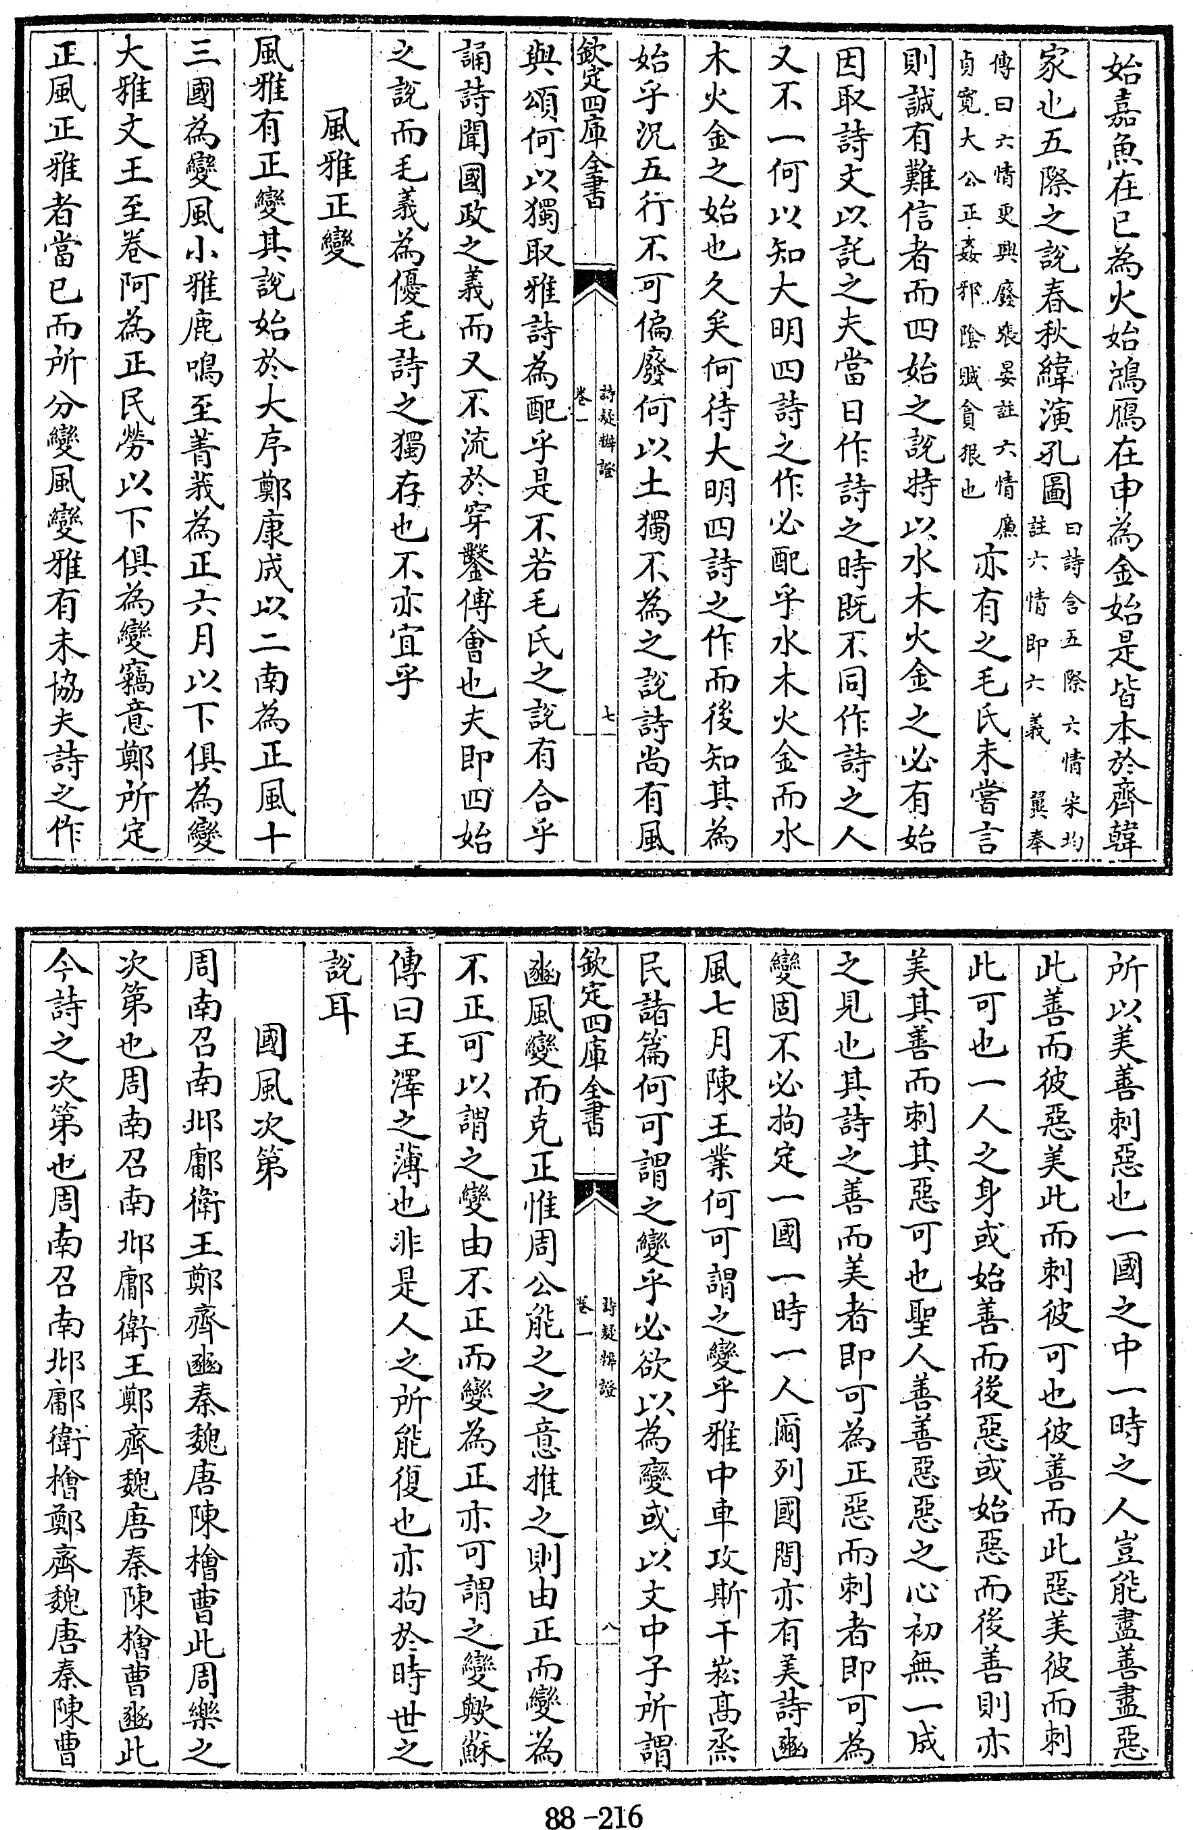 始嘉魚在巳為火始鴻鴈在申為金始是皆本於齊韓
家也五際之說春秋緯演孔圖曰詩含五際六情宋均註六情即六義翼奉
傳曰六情更興廢張晏註六情廉貞寛大公正姦邪陰賊貪狠也亦有之毛氏未嘗言
則誠有難信者而四始之說特以水木火金之必有始
因取詩文以託之夫當日作詩之時既不同作詩之人
又不一何以知大明四詩之作必配乎水木火金而水
木火金之始也久矣何待大明四詩之作而後知其為
始乎況五行不可偏廢何以土獨不為之說詩尚有風
欽定四庫全書
詩疑辨證
卷一
七
與頌何以獨取雅詩為配乎是不若毛氏之說有合乎
誦詩聞國政之義而又不流於穿鑿傅會也夫即四始
之說而毛義為優毛詩之獨存也不亦宜乎
風雅正變
風雅有正變其說始於大序鄭康成以二南為正風十
三國為變風小雅鹿鳴至菁莪為正六月以下俱為變
大雅文王至卷阿為正民勞以下俱為變竊意鄭所定
正風正雅者當已而所分變風變雅有未協夫詩之作
所以美善刺惡也一國之中一時之人豈能盡善盡惡
此善而彼惡美此而刺彼可也彼善而此惡美彼而刺
此可也一人之身或始善而後惡或始惡而後善則亦
美其善而刺其惡可也聖人善善惡惡之心初無一成
之見也其詩之善而美者即可為正惡而刺者即可為
變固不必拘定一國一時一人爾列國間亦有美詩豳
風七月陳王業何可謂之變乎雅中車攻斯干崧高烝
民諸篇何可謂之變乎必欲以為變或以文中子所謂
欽定四庫全書
詩疑辨證
卷一
八
豳風變而克正惟周公能之之意推之則由正而變為
不正可以謂之變由不正而變為正亦可謂之變歟蘇
傳曰王澤之薄也非是人之所能復也亦拘於時世之
說耳
國風次第
周南召南邶鄘衛王鄭齊豳秦魏唐陳檜曹此周樂之
次第也周南召南邶鄘衛王鄭齊魏唐秦陳檜曹豳此
今詩之次第也周南召南邶鄘衛檜鄭齊魏唐秦陳曹
88-216